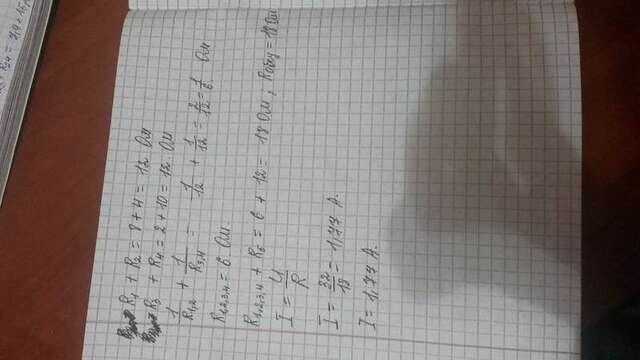 R₁ + R₂ = 8 + 4 = 12 Ом
R₃ + R₄ = 2 + 10 = 12 Ом
1/R₁,₂ + 1/R₃,₄ = 1/12 + 1/12 = 2/12 = 1/6 Ом
R₁,₂,₃,₄ = 6 Ом.
R₁,₂,₃,₄ + R₅ = 6 + 12 = 18 Ом, Rобщ = 18 Ом
I = U/R
I = 32/18 = 1,77 А.
I = 1,77 А.